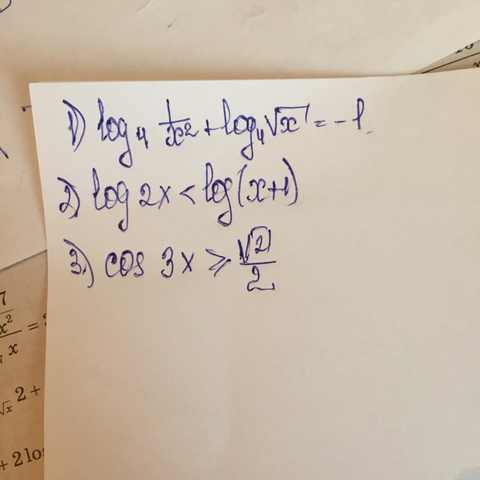 1) log₄ 1/x² + log₄ √x = -1.
2) log 2x < log(x+1)
3.) cos 3x ≥ √2/2
7
x² =
x
√x 2 +
+ 2 log